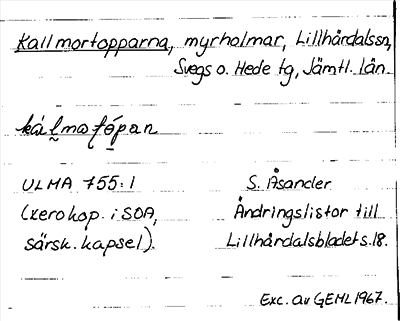 Kallmortopparna, myrholmar, Lillhårdalssn,
Svegs o. Hede tg, Jämtl. län.
kálmotópan
ULMA 755:1 S. Åsander
(xerokop. i SOA, Ändringslistor till
särsk. kapsel). Lillhårdalsbladet s. 18.
Exc. av GEHL 1967.